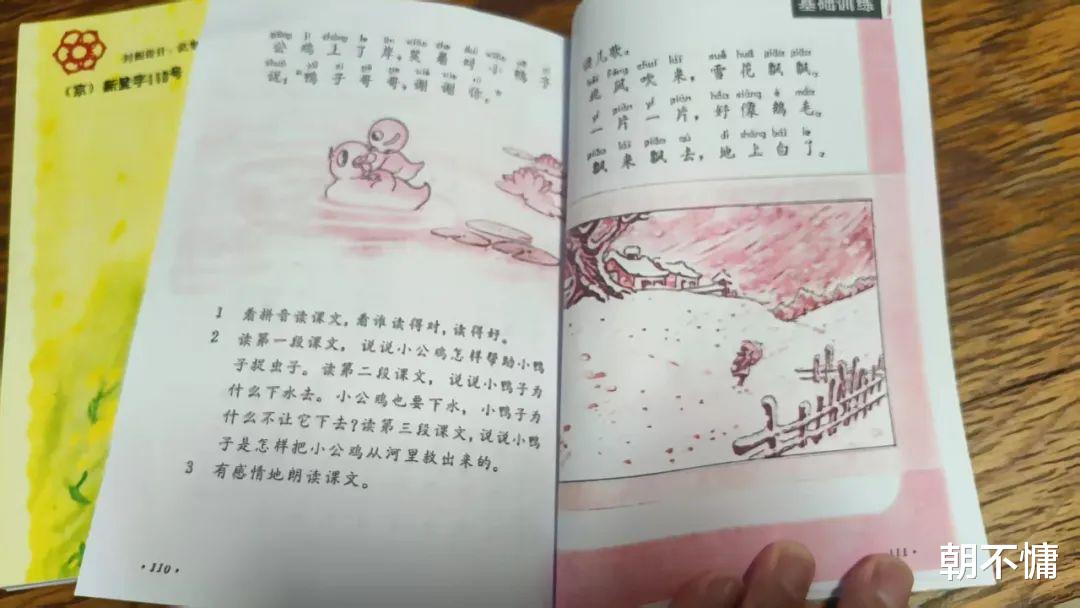 封面设计：
（京）新登字118号
gōng jī shàng le àn, xiào zhe duì xiǎo yā zi
公鸡上了岸，笑着对小鸭子
shuō yā zi gē ge xiè xie nǐ
说，“鸭子哥哥，谢谢你。”
1 看拼音读课文，看谁读得对，读得好。
2 读第一段课文，说说小公鸡怎样帮助小鸭
子捉虫子。读第二段课文，说说小鸭子为
什么下水去。小公鸡也要下水，小鸭子为
什么不让它下去？读第三段课文，说说小鸭
子是怎样把小公鸡从河里救出来的。
3 有感情地朗读课文。
·110·
基础训练
读儿歌。
běi fēng chuī lái xuě huā piāo piāo
北风吹来，雪花飘飘。
yí piàn yí piàn hǎo xiàng é máo
一片一片，好像鹅毛。
piāo lái piāo qù dì shàng bái le
飘来飘去，地上白了。
111
朝不慵